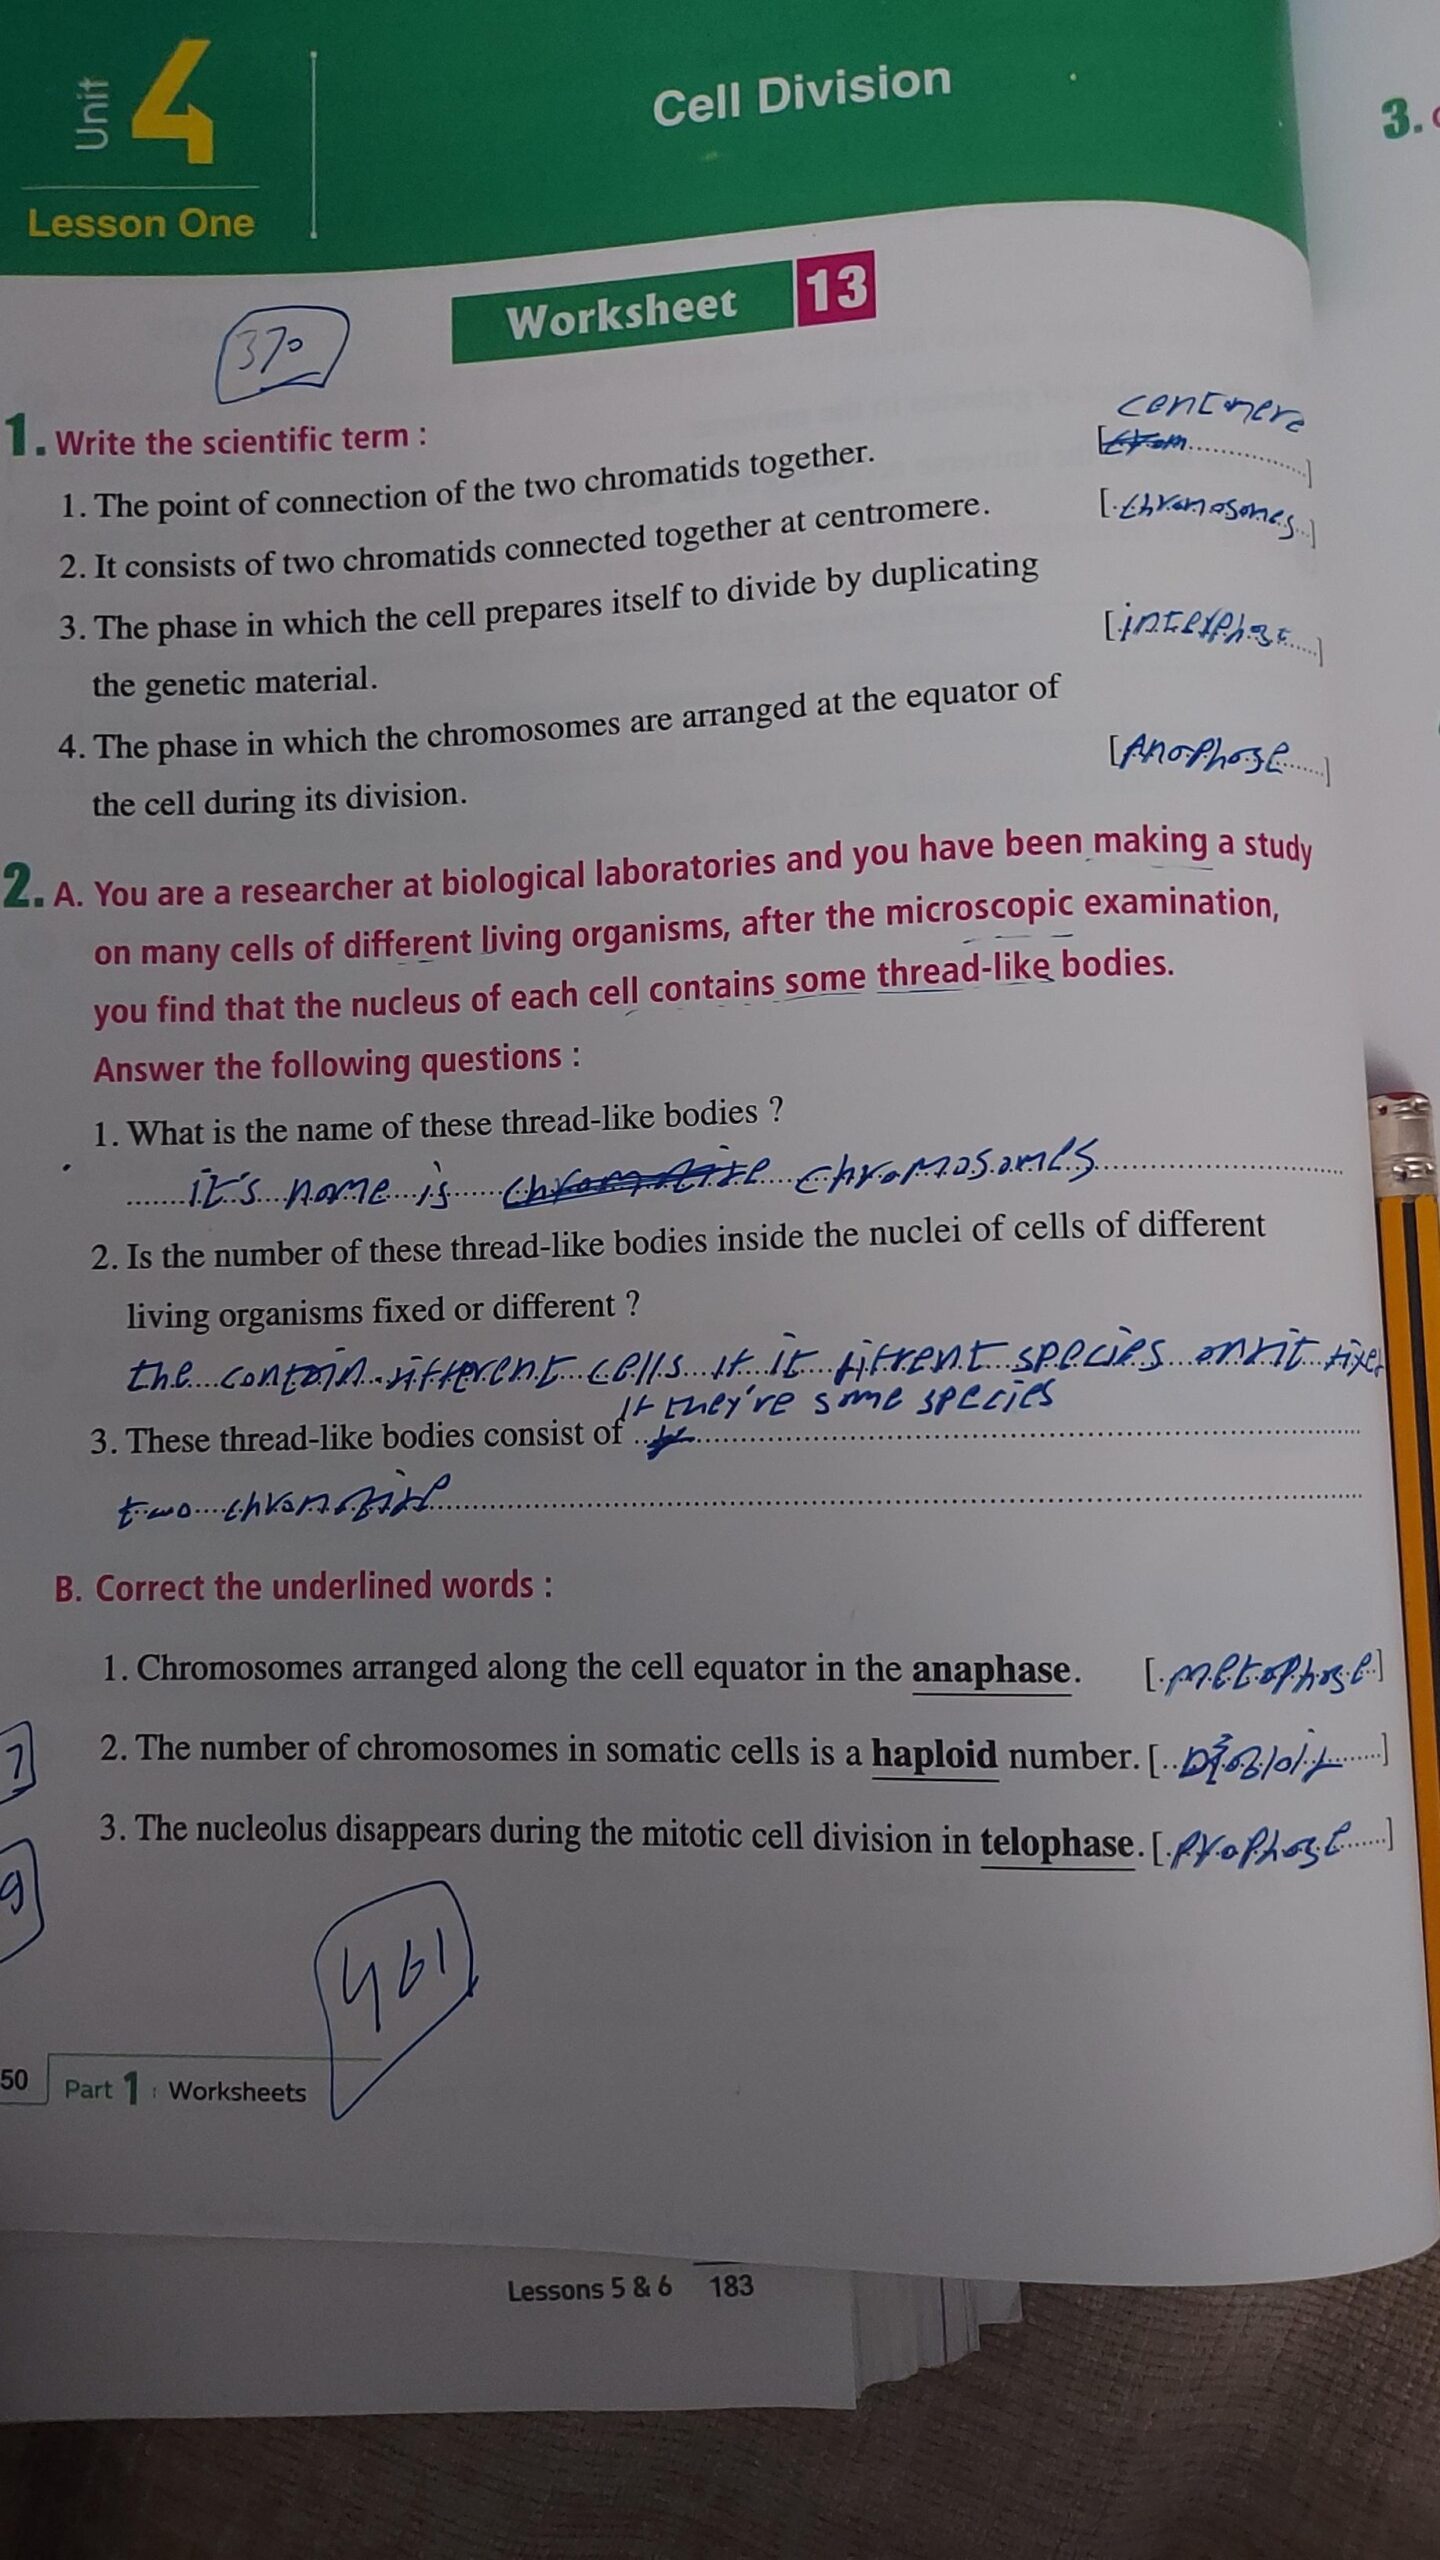 Unit 4
Cell Division
3.
Lesson One
Worksheet 13
370
1. Write the scientific term :
centomere
1. The point of connection of the two chromatids together. [.....]
2. It consists of two chromatids connected together at centromere. [chromosomes]
3. The phase in which the cell prepares itself to divide by duplicating
the genetic material. [interphase]
4. The phase in which the chromosomes are arranged at the equator of
the cell during its division. [Anaphase]
2. A. You are a researcher at biological laboratories and you have been making a study
on many cells of different living organisms, after the microscopic examination,
you find that the nucleus of each cell contains some thread-like bodies.
Answer the following questions :
1. What is the name of these thread-like bodies ?
it's name is chromosomes
2. Is the number of these thread-like bodies inside the nuclei of cells of different
living organisms fixed or different ?
the contain different cells if it species
if they're same species
3. These thread-like bodies consist of
two
B. Correct the underlined words :
1. Chromosomes arranged along the cell equator in the anaphase. [metaphase]
2. The number of chromosomes in somatic cells is a haploid number. [.....]
7
3. The nucleolus disappears during the mitotic cell division in telophase. [prophase]
9
461
50 Part 1 : Worksheets
Lessons 5 & 6 183